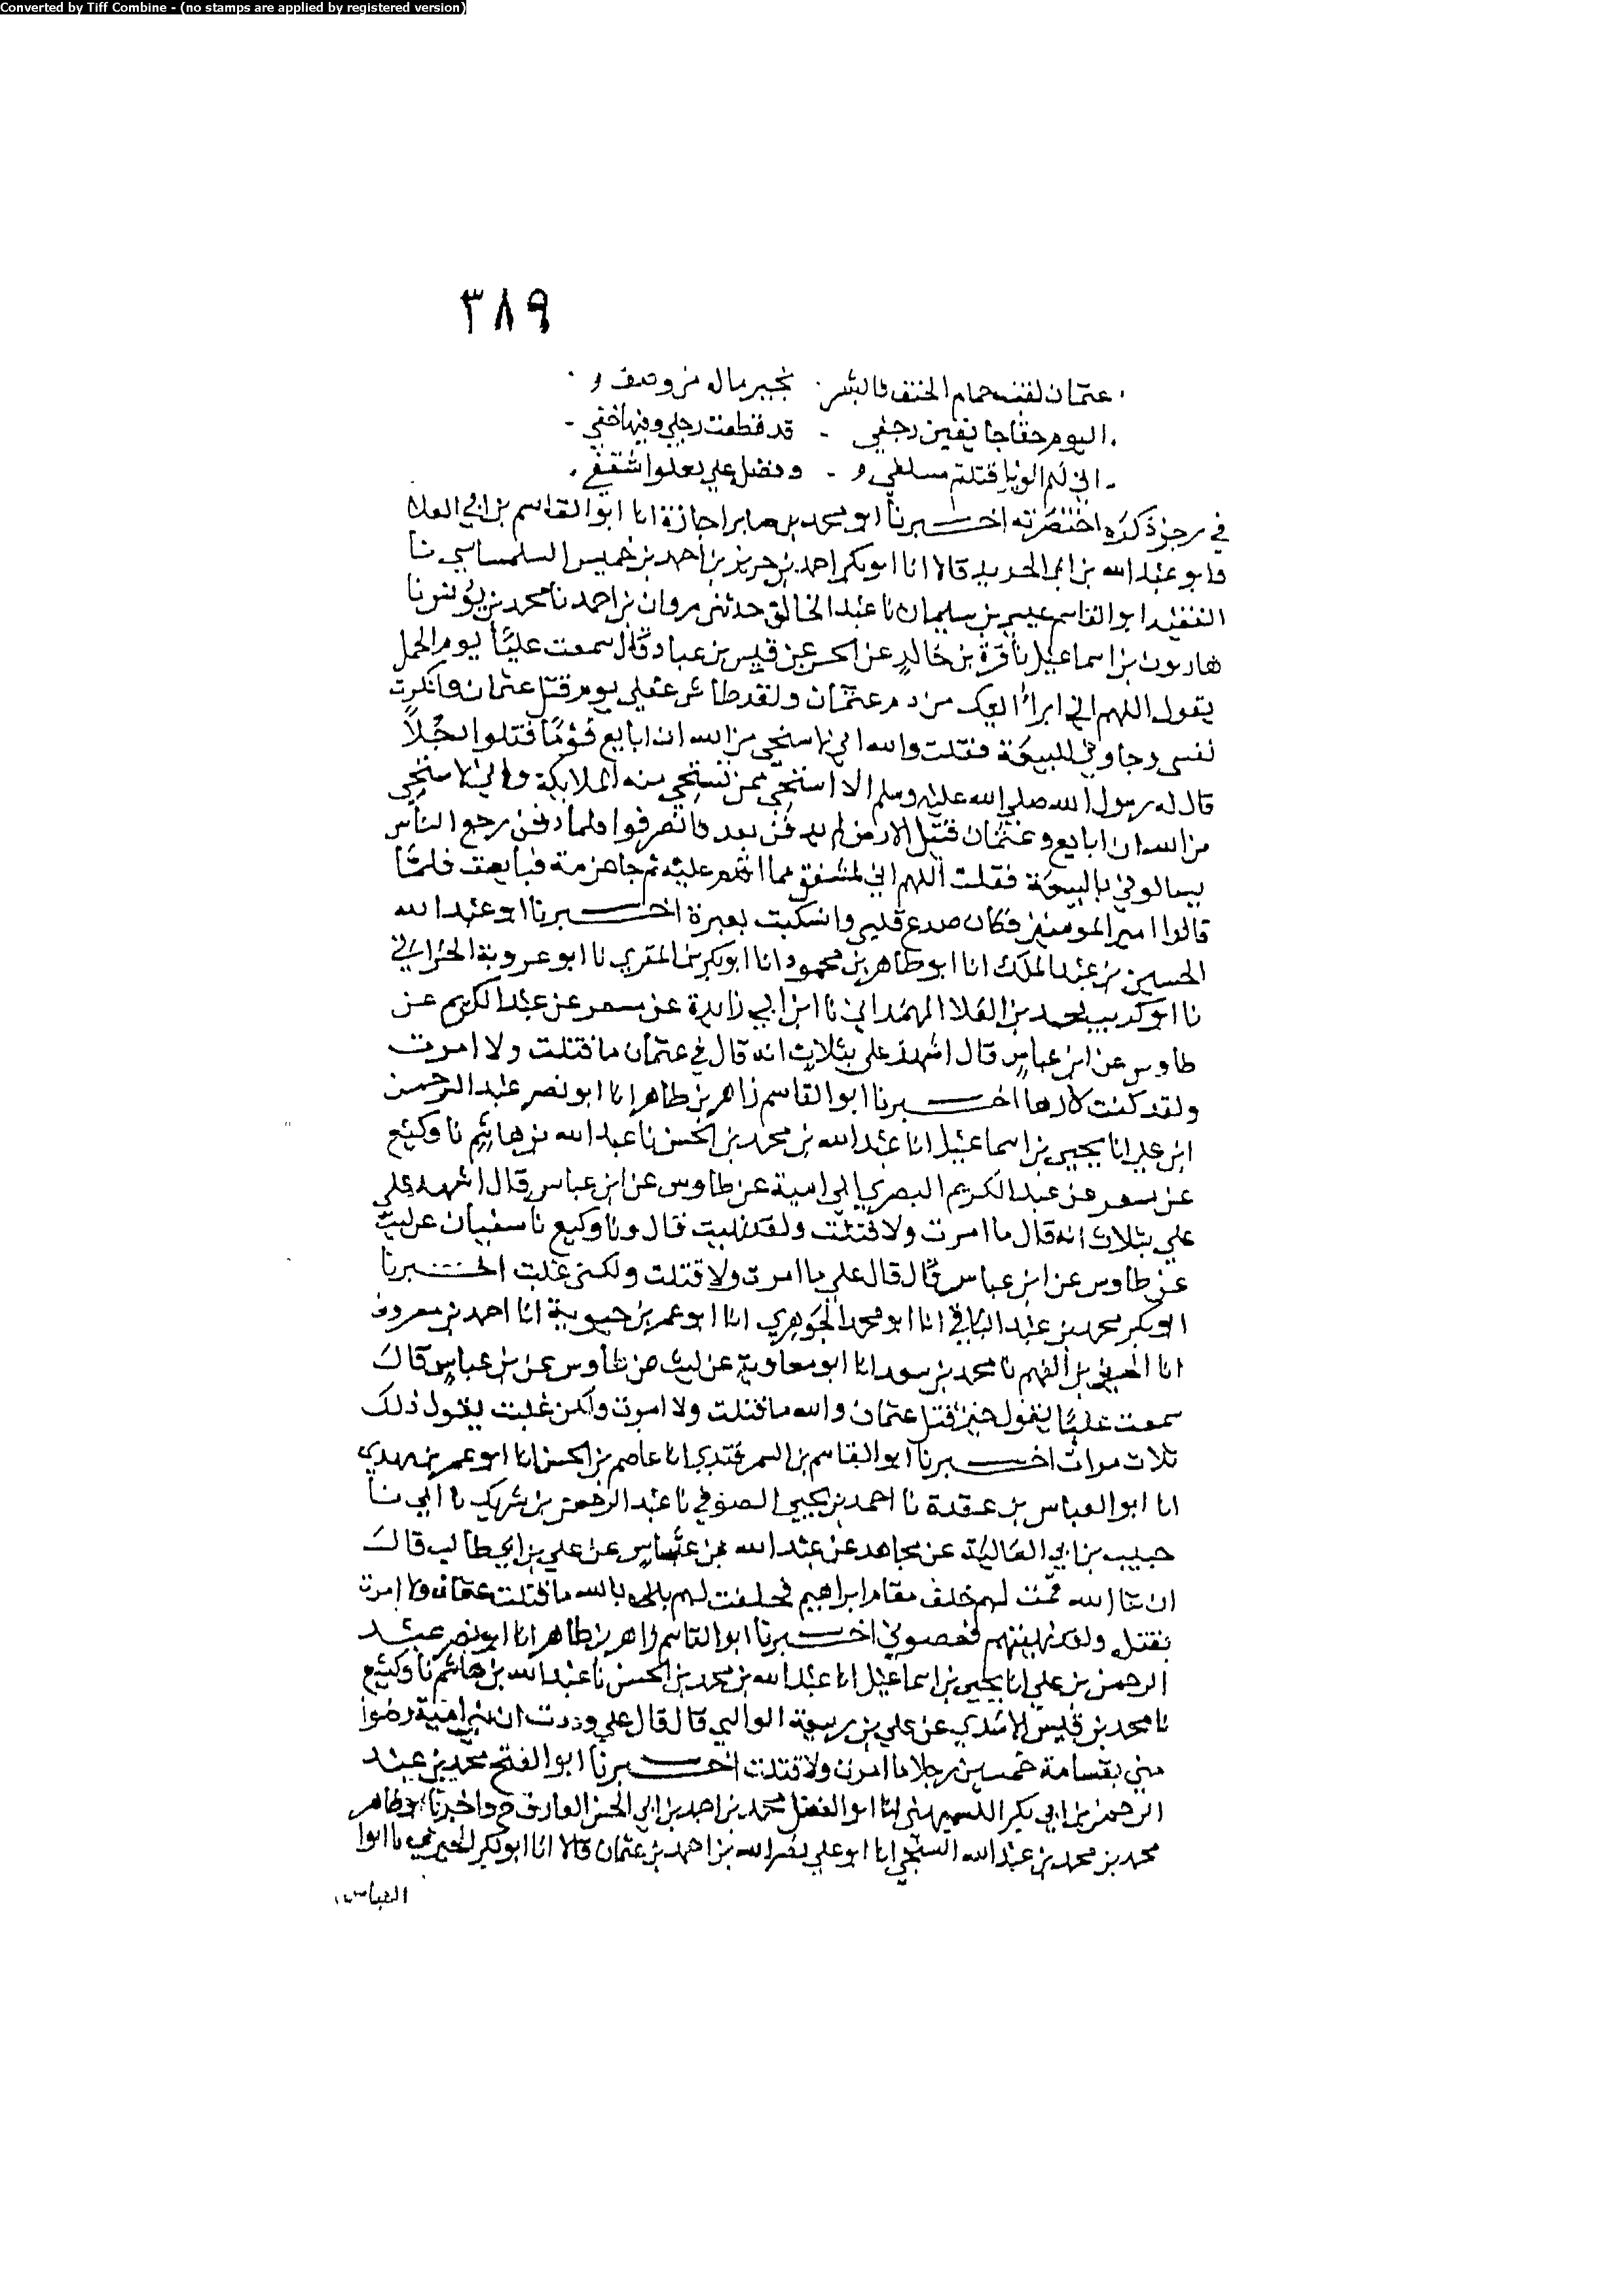 Converted by Tiff Combine - (no stamps are applied by registered version)
٣٨٩
عثمان لقنه حمام الحنف فالبشر
اليوم حقا جا نفين رجفي قد قطعت رجلي وفيها خفي
اني لهم قتلة وفضل علي يعلوا شقفي
في رجز ذكره اختصرته اخبرنا ابو محمد بن صابر اجازة انا ابو القاسم بن ابي العلا
وابو عبد الله بن ابي الحديد قالا انا ابو بكر احمد بن حريز بن احمد بن خميس السلماسي نا
الفقيه ابو القاسم عيسى بن سليمان نا عبد الخالق حدثني مروان بن احمد نا محمد بن يونس نا
هارون بن اسماعيل نا قرة بن خالد عن الحسن عن قيس بن عباد قال سمعت عليا يوم الجمل
يقول اللهم اني ابرا اليك من دم عثمان ولقد طاش عقلي يوم قتل عثمان وانكرت
نفسي وجاوني للبيعة فقلت والله اني لاستحي من الله ان ابايع قوما قتلوا رجلا
قال له رسول الله صلى الله عليه وسلم الا استحي ممن تستحي منه الملايكة واني لاستحي
من الله ان ابايع وعثمان قتيل الارض لم يدفن بعد فانصرفوا فلما دفن رجع الناس
يسالوني بالبيعة فقلت اللهم اني لمشفق مما اقدم عليه ثم جا عزمة فبايعت فلما
قالوا امير المومنين فكان صدع قلبي وانسكبت بعبرة اخبرنا ابو عبد الله
الحسين بن عبد الملك انا ابو طاهر بن محمود انا ابو بكر بن المقري نا ابو عروبة الحراني
نا ابو كريب محمد بن العلا الهمداني نا ابن ابي زايدة عن مسعر عن عبد الكريم عن
طاوس عن ابن عباس قال اشهد علي بثلاث انه قال في عثمان ما قتلت ولا امرت
ولقد كنت كارها اخبرنا ابو القاسم زاهر بن طاهر انا ابو نصر عبد الرحمن
ابن علي انا يحيى بن اسماعيل انا عبد الله بن محمد بن الحسن نا عبد الله بن هاشم نا وكيع
عن مسعر عن عبد الكريم البصري ابي امية عن طاوس عن ابن عباس قال اشهد علي
علي بثلاث انه قال ما امرت ولا قتلت ولقد نهيت قال ونا وكيع نا سفيان عن ليث
عن طاوس عن ابن عباس قال قال علي ما امرت ولا قتلت ولكني غلبت اخبرنا
ابو بكر محمد بن عبد الباقي انا ابو محمد الجوهري انا ابو عمر بن حيوية انا احمد بن معروف
انا الحسين بن الفهم نا محمد بن سعد انا ابو معاوية عن ليث عن طاوس عن بن عباس قال
سمعت عليا يقول حين قتل عثمان والله ما قتلت ولا امرت ولكن غلبت يقول ذلك
ثلاث مرات اخبرنا ابو القاسم بن السمرقندي انا عاصم بن الحسن انا ابو عمر بن مهدي
انا ابو العباس بن عقدة نا احمد بن يحيى الصوفي نا عبد الرحمن بن شريك نا ابي نا
حبيب بن ابي العالية عن مجاهد عن عبد الله بن عباس عن علي بن ابي طالب قال
ان شا الله قمت لهم خلف مقام ابراهيم فحلفت لهم بالله ما قتلت عثمان ولا امرت
بقتله ولقد نهيتهم فعصوني اخبرنا ابو القاسم زاهر بن طاهر انا ابو نصر عبد
الرحمن بن علي انا يحيى بن اسماعيل انا عبد الله بن محمد بن الحسن نا عبد الله بن هاشم نا وكيع
نا محمد بن قيس الاسدي عن علي بن ربيعة الوالبي قال قال علي وددت ان بني امية رضوا
مني بقسامة خمسين رجلا ما امرت ولا قتلت اخبرنا ابو الفتح محمد بن عبد
الرحمن بن ابي بكر انا ابو الفضل محمد بن احمد بن ابي الحسن العارف ح واخبرنا ابو طاهر
محمد بن محمد بن عبد الله السنجي انا ابو علي نصر الله بن احمد بن عثمان قالا انا ابو بكر الحيري نا ابوا
العباس